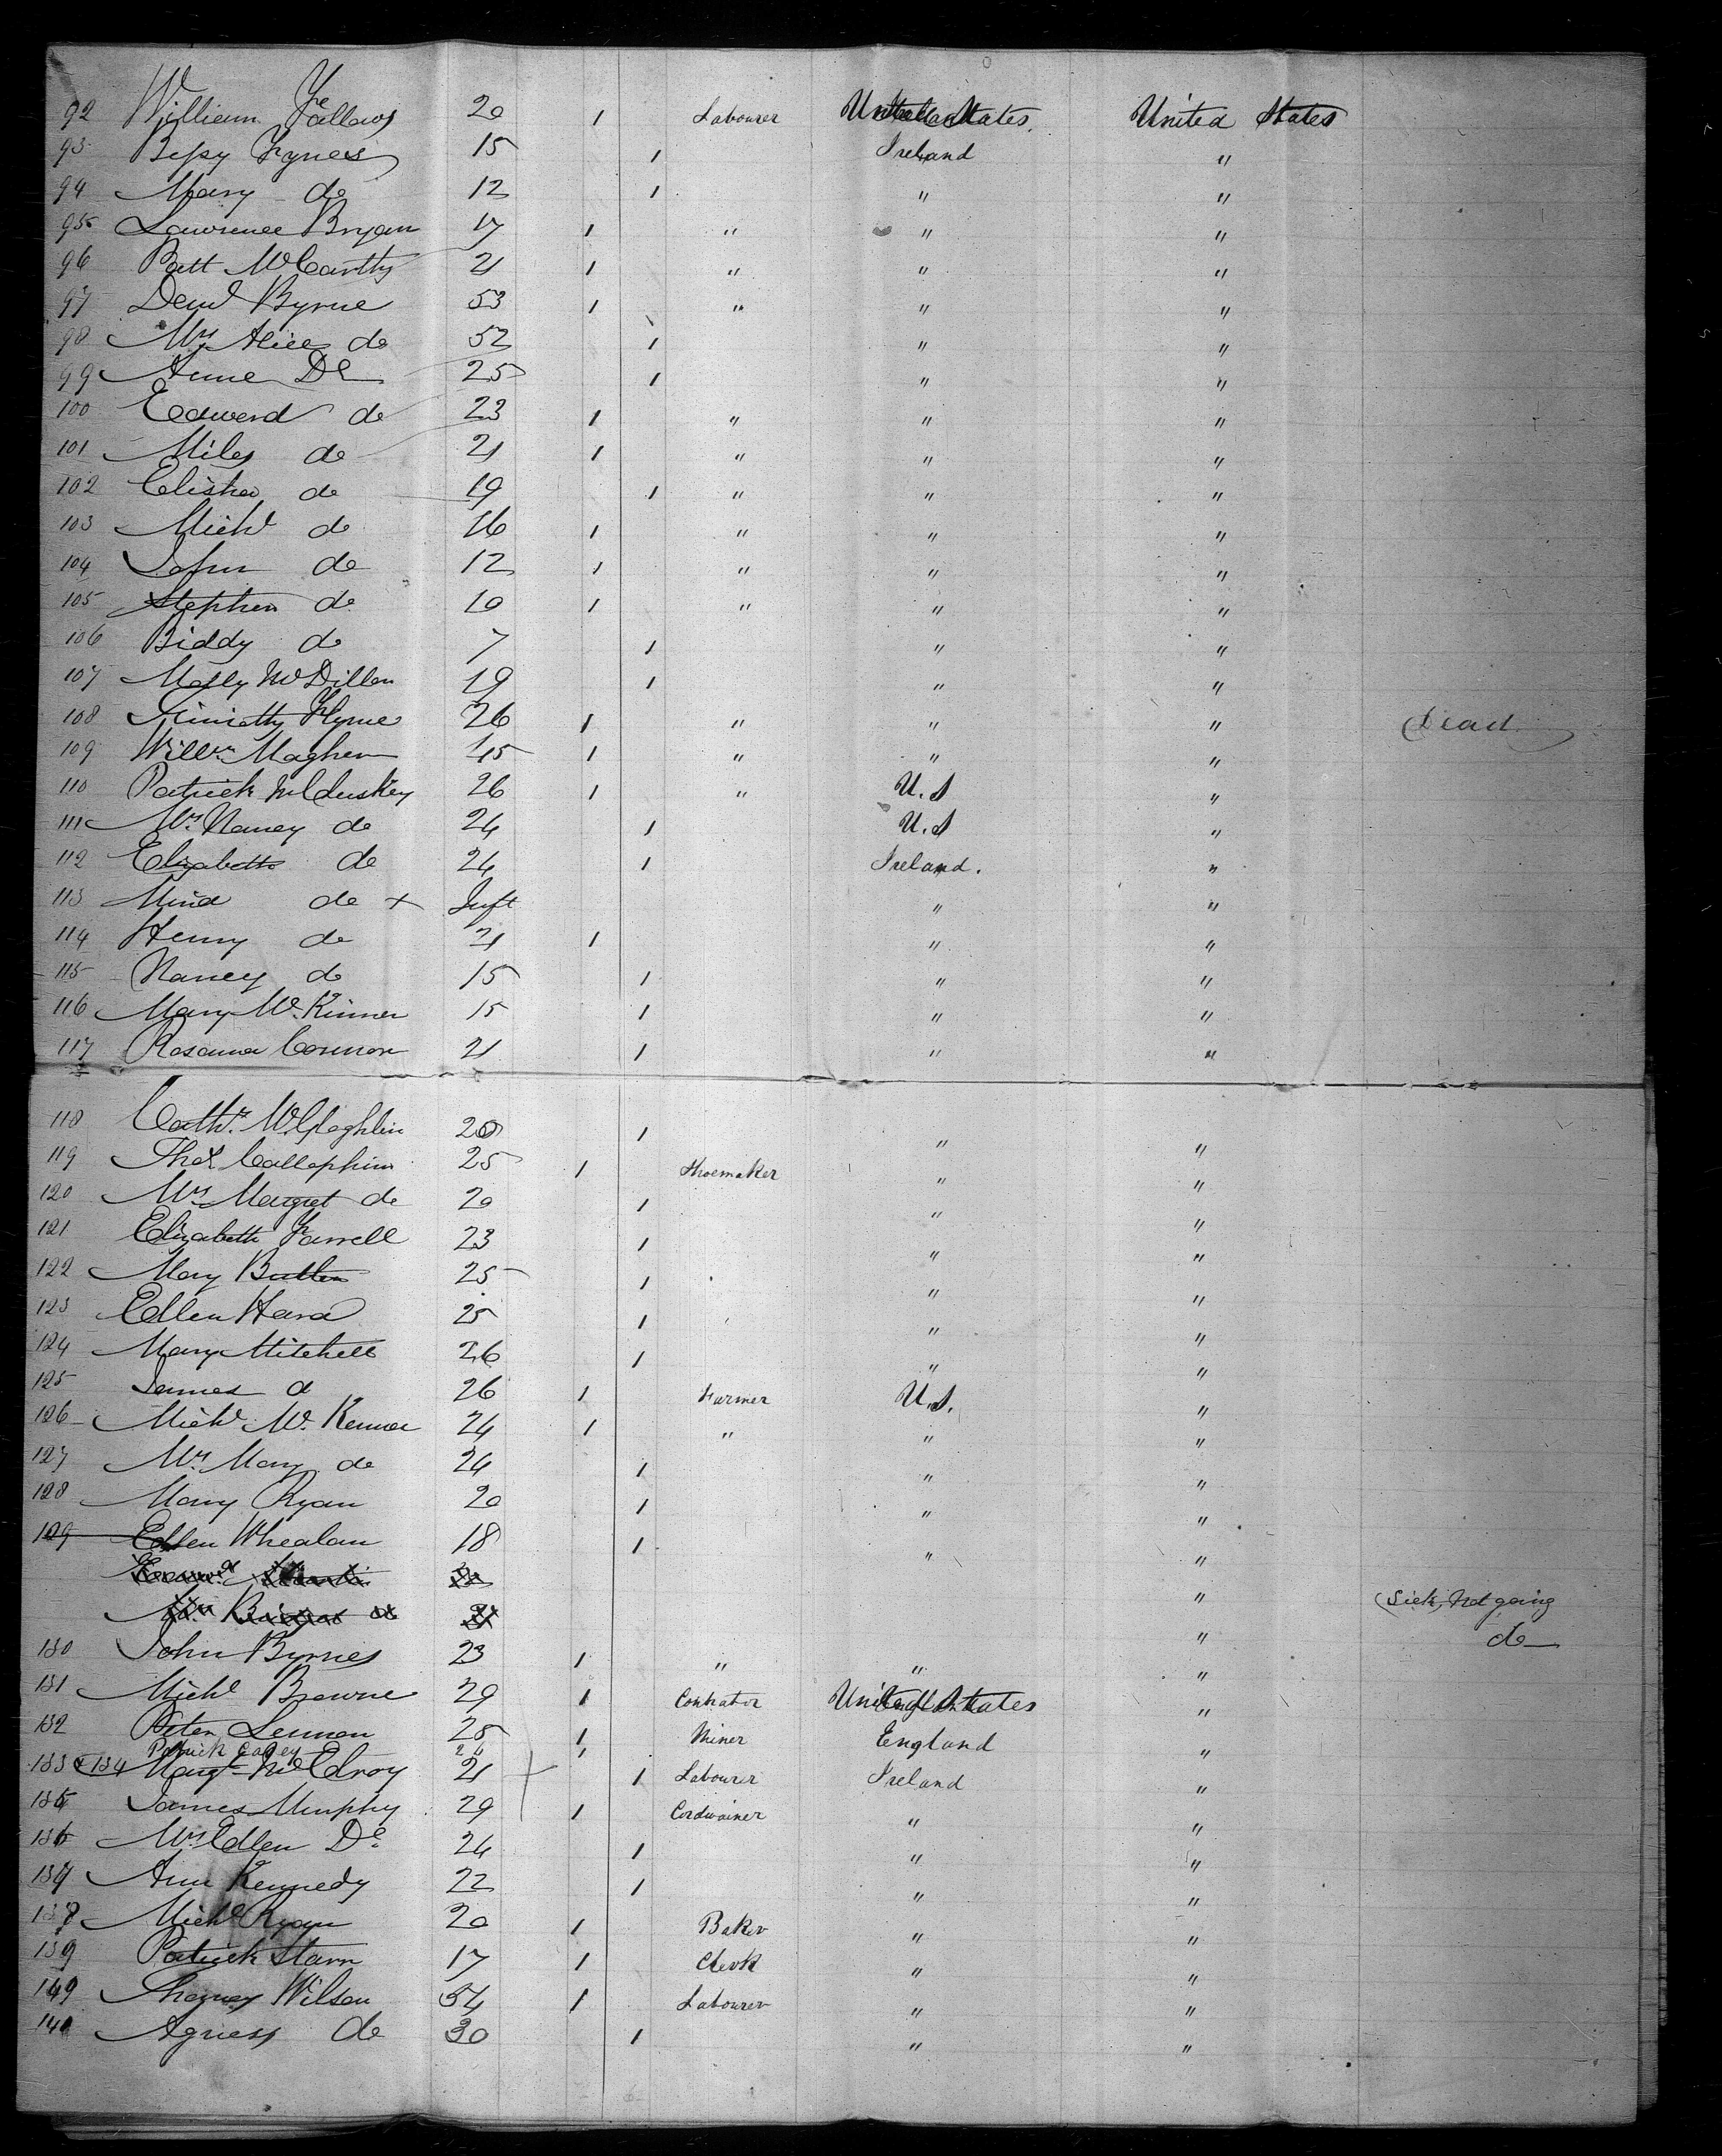 92 William Fallows 20 1 Labourer United States United States
93 Bessy Hynes 15 1 Ireland "
94 Mary do 12 1 " "
95 Lawrence Bryan 17 1 " " "
96 Patt McCarthy 21 1 " " "
97 Denis Byrne 53 1 " " "
98 Mrs Alice do 52 1 " "
99 Anne Do 25 1 " "
100 Edward do 23 1 " " "
101 Miles do 21 1 " " "
102 Elisha do 19 1 " " "
103 Michl do 16 1 " " "
104 John do 12 1 " " "
105 Stephen do 10 1 " " "
106 Biddy do 7 1 " "
107 Molly McDillon 19 1 " "
108 26 1 " " " Dead
109 Willm Magher 45 1 " " "
110 Patrick McCluskey 26 1 " U.S "
111 Mrs Nancy do 24 1 U.S "
112 Elizabeth do 24 1 Ireland. "
113 do + Inft " "
114 Henry do 21 1 " "
115 Nancy do 15 1 " "
116 Mary McKinner 15 1 " "
117 Rosanna Connor 21 1 " "
118 Cathr. McGloghlin 20 1 " "
119 Thos Callaphin 25 1 Shoemaker " "
120 Mrs Margret do 20 1 " "
121 Elizabeth Farrell 23 1 " "
122 Mary Butler 25 1 " "
123 Ellen Hara 25 1 " "
124 Mary Mitchell 26 1 " "
125 James d 26 1 Farmer U.S. "
126 Michl McKenna 24 1 " " "
127 Mrs Mary do 24 1 " "
128 Mary Ryan 20 1 " "
129 Ellen Whealan 18 1 " "
" Sick, Not going
" do
130 John Byrnes 23 1 " " "
131 Michl Browne 29 1 Contrator United States "
132 Peter Lennon 25 1 Miner England "
Patrick Casey 26 1
133 & 134 Margt McElroy 21 1 Labourer Ireland "
135 James Murphy 29 1 Cordwainer " "
136 Mrs Ellen Do 24 1 " "
137 Ann Kennedy 22 1 " "
138 Michl Ryan 20 1 Baker " "
139 Patrick Starr 17 1 Clerk " "
140 Thomas Wilson 54 1 Labourer " "
141 Agness do 30 1 " "